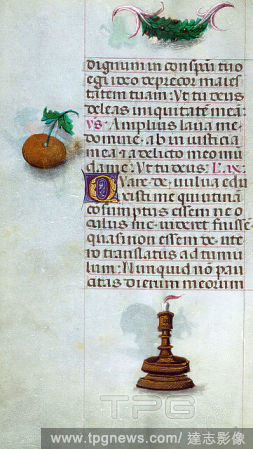 dignum in conspectu tuo
egi ideo deprecor maies
tatem tuam: Ut tu deus
deleas iniquitatē meā
vs. Amplius laua me
domine ab iniusticia
mea et a delicto meo mū
da me: Ut tu deus: Lec̄
Quare de uulua edu
xisti me qui utinā
cōsumptus essem ne o
culus me uideret fuissē
quasi non essem de ute
ro translatus ad tumu
lum: Nunquid nō pau
citas dierum meorum
TPG
www.tpgnews.com/達志影像